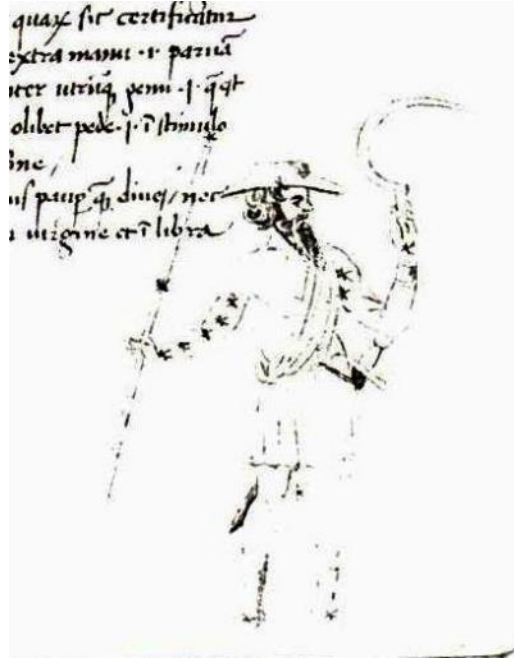 quaꝝ sic certificātur
extra manū ·1· paruā
ter utrūq̨ genu ·1· q̄ est
olibet pede ·1· ī stimulo
ine
us paup q̄ȝ diues / nec
uirgine et ī libra